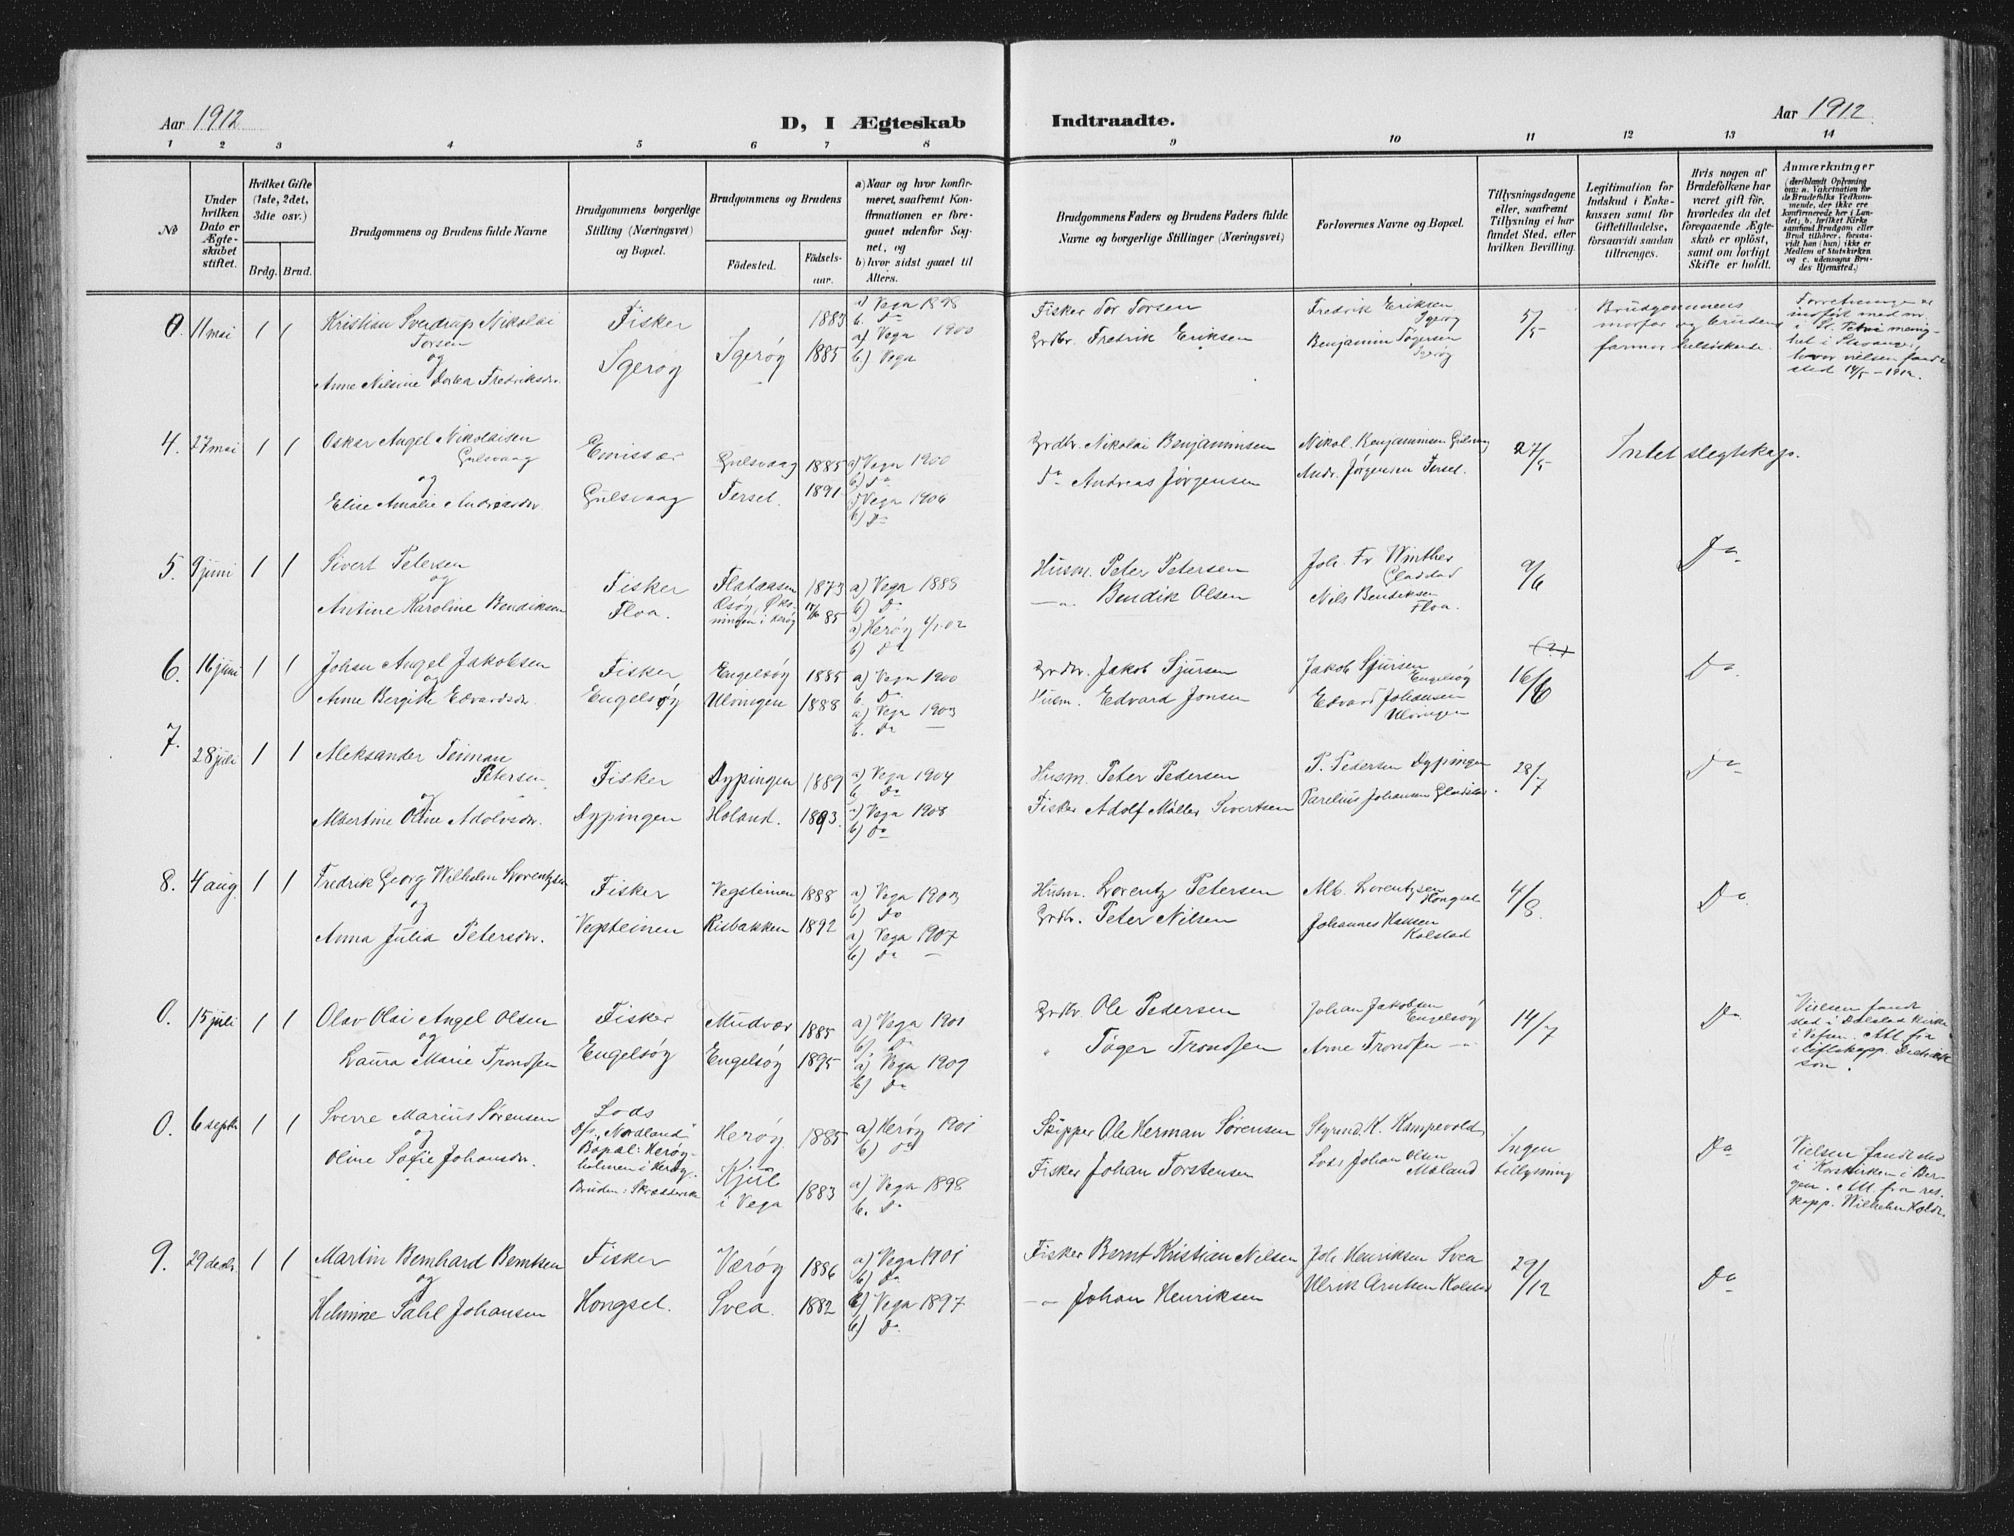 Aar 1912
D, I Ægteskab
Indtraadte.
Aar 1912.
1 2 3 4 5 6 7 8 9 10 11 12 13 14
No
Under hvilken Dato er Ægteskabet stiftet.
Hvilket Gifte (1ste, 2det, 3die osv.)
Brdg. Brud.
Brudgommens og Brudens fulde Navne
Brudgommens borgerlige Stilling (Næringsvei) og Bopæl.
Brudgommens og Brudens
Födested. Födsels-aar.
a) Naar og hvor konfirmeret, saafremt Konfirmationen er foregaaet udenfor Sognet, og
b) hvor sidst gaaet til Alters.
Brudgommens Faders og Brudens Faders fulde Navne og borgerlige Stillinger (Næringsvei)
Forlovernes Navne og Bopæl.
Tillysningsdagene eller, saafremt Tillysning ei har fundet Sted, efter hvilken Bevilling.
Legitimation for Indskud i Enkekassen samt for Giftetilladelse, forsaavidt saadan tiltrænges.
Hvis nogen af Brudefolkene har været gift för, hvorledes da det foregaaende Ægteskab er oplöst, samt om lovligt Skifte er holdt.
Anmærkninger
(deriblandt Oplysning om: a. Vakcination for de Brudefolks Vedkommende, der ikke ere konfirmerede her i Landet; b. hvilket Kirkesamfund Brudgom eller Brud tilhörer, forsaavidt han (hun) ikke er Medlem af Statskirken og c. udensogns Brudes Hjemsted.)
0. 11 mai 1 1 Kristian Sverdrup Nikolai
Torsen
og
Anne Nilsine Dortea Fredriksdr.
Fisker
Igerøy
Igerøy
1883
1885
a) Vega 1898
b. Do
a) Vega 1900
b) Vega
Fisker Tor Torsen
Grdbr. Fredrik Eriksen
Fredrik Eriksen
Igerøy
Benjamin Tøgersen
Igerøy
5/5
Brudgommens
morfar og brudens
farmor helsøskende.
Forretningen er
i St. Petri menig-
het i Stavanger,
hvor vielsen fandt
sted 14/5 - 1912.
4. 27 mai 1 1 Oskar Angel Nikolaisen
Gulsvaag
og
Elise Amalie Andreasdr.
Emissær
Gulsvaag
Gulsvaag 1885
Tersel. 1891.
a) Vega 1900
b) Do
a) Vega 1906
b) Do
Grdbr. Nikolai Benjaminsen
Do Andreas Jørgensen
Nikol. Benjaminsen Gulsvaag
Andr. Jørgensen Tersel.
27/5
Intet slegtskap.
5. 9 juni 1 1 Sivert Petersen
og
Antine Karoline Bendiksen
Fisker
Floa.
Flataasen 1873
i Herøy 85
a) Vega 1888
b) Do
a) Herøy 6/7 02
b) Do
Husm. Peter Petersen
— " — Bendik Olsen
Joh. Fr Winther
Gladstad
Nils Bendiksen
Floa.
9/6
Do
6. 16 juni 1 1 Johan Angel Jakobsen
og
Anne Bergitte Edvardsdr.
Fisker
Engelsøy
Engelsøy 1885
Ulvingen 1888
a) Vega 1900
b. Do
a) Vega 1903
b. Do —
Grdbr. Jakob Sjursen
Husm. Edvard Jonsen
Jakob Sjursen
Engelsøy
Edvard Johansen
Ulvingen
(?)
16/6
Do
7. 28 juli 1 1 Aleksander Teiman
Petersen
og
Albertine Oline Adolvsdr.
Fisker
Dypingen
Dypingen 1889
Holand. 1893.
a) Vega 1904
b. Do
a) Vega 1908
b) Do
Husm. Peter Pedersen
Fisker Adolf Møller Sivertsen
P. Pedersen Dypingen
Parelius Johansen Gladstad.
28/7
Do
8. 4 aug. 1 1 Fredrik Georg Wilhelm Lorentzsen
og
Anna Julia Petersdr.
Fisker
Vegsteinen
Vegsteinen 1888
Risbakken 1892
a) Vega 1903
b) Do
a) Vega 1907
b) Do —
Husm. Lorentz Petersen
Grdbr. Peter Nilsen
Alb. Lorentzsen
Hongset
Johannes Hansen
Kolstad
4/8.
Do
0. 15 juli 1 1 Olav Olai Angel Olsen
og
Laura Marie Trondsen
Fisker
Engelsøy
Mudvær 1885
Engelsøy 1895
a) Vega 1901
b) Do
a) Vega 1909
b) Do
Grdbr. Ole Pedersen
" Tøger Trondsen
Johan Jakobsen
Engelsøy
Arne Trondsen — " —
14/7
Do
Vielsen fandt
sted i Dolstad kirke
i Vefsen. Att fra
stiftskapp. Dietrick-
son.
0. 6 septr 1 1 Sverre Marius Sørensen
og
Oline Sofie Johansdr.
Lods
D/s "Nordland"
Bopæl: Herøy-
holmen i Herøy.
Bruden: Skrædderske
Herøy 1885
Kjul
i Vega 1883
a) Herøy 1901
b) Do
a) Vega 1898
b. Do
Skipper Ole Herman Sørensen
Fisker Johan Torstensen
Styrmd. K. Kampevold
Lods Johan Olsen
Moland
Ingen
tillysning
Do
Vielsen fandt sted
i Korskirken i Ber-
gen. Att. fra res.
kapp. Wilhelm Koldr.
9. 29 decbr. 1 1 Martin Bernhard Berntsen
og
Helmine Tahl Johansen
Fisker
Hongset.
Værøy 1886
Svea. 1882
a) Vega 1901
b) Do
a) Vega 1897
b) Do
Fisker Bernt Kristian Nilsen
— " — Johan Henriksen
Joh. Henriksen Svea
Ulrik Arntsen Kolstad
29/12
Do